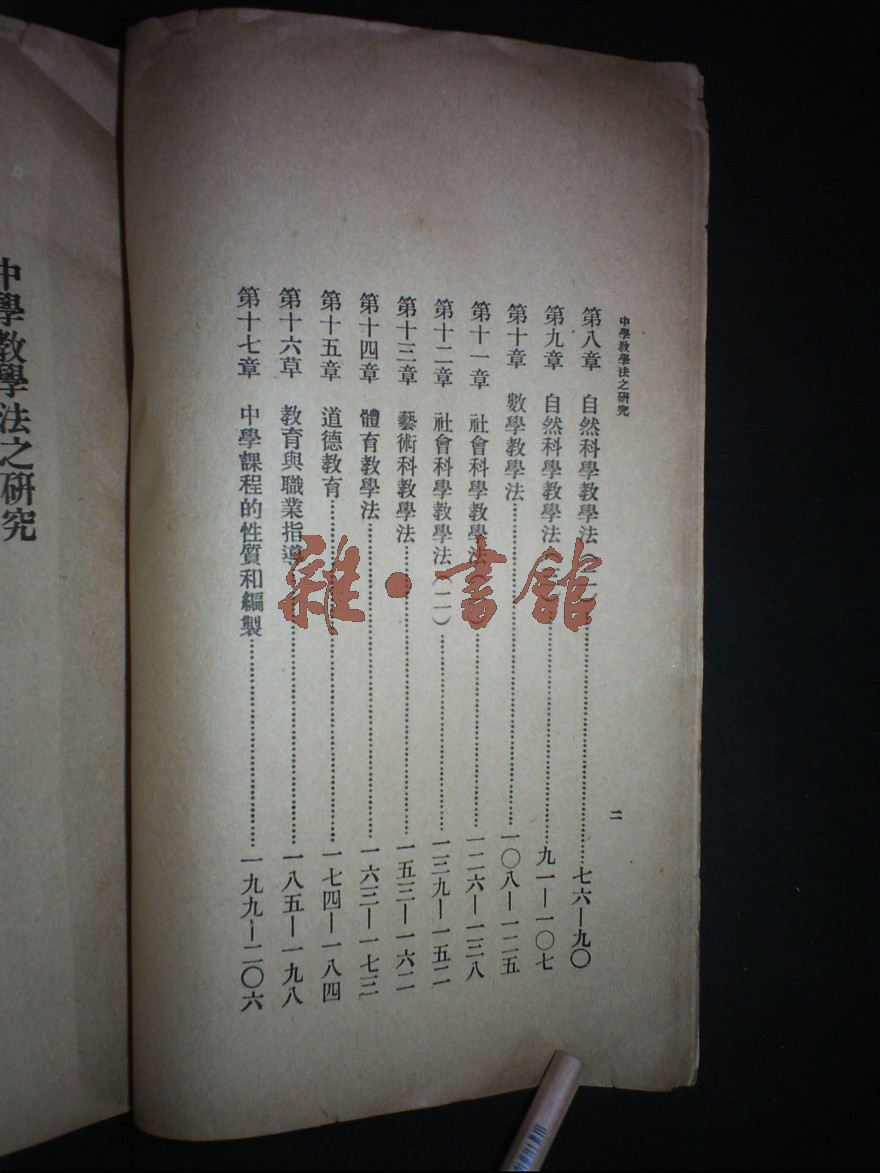 中學教學法之研究
二
第八章 自然科學教學法……七六—九〇
第九章 自然科學教學法……九一—一〇七
第十章 數學教學法……一〇八—一二五
第十一章 社會科學教學法……一二六—一三八
第十二章 社會科學教學法(二)……一三九—一五二
第十三章 藝術科教學法……一五三—一六二
第十四章 體育教學法……一六三—一七三
第十五章 道德教育……一七四—一八四
第十六草 教育與職業指導……一八五—一九八
第十七章 中學課程的性質和編製……一九九—二〇六
中學教學法之研究
雜·書館